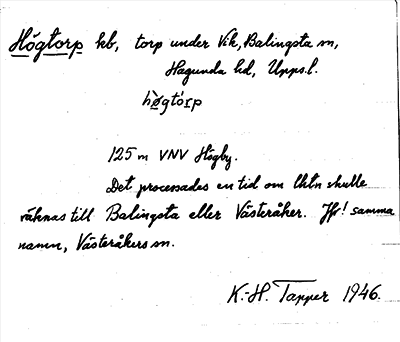 Högtorp kb, torp under Vik, Balingsta sn,
Hagunda hd, Upps.l.
hö̀gtórp
125 m VNV Högby.
Det processades en tid om lhtn skulle
räknas till Balingsta eller Västeråker. Jfr! samma
namn, Västeråkers sn.
K.-H. Tapper 1946.